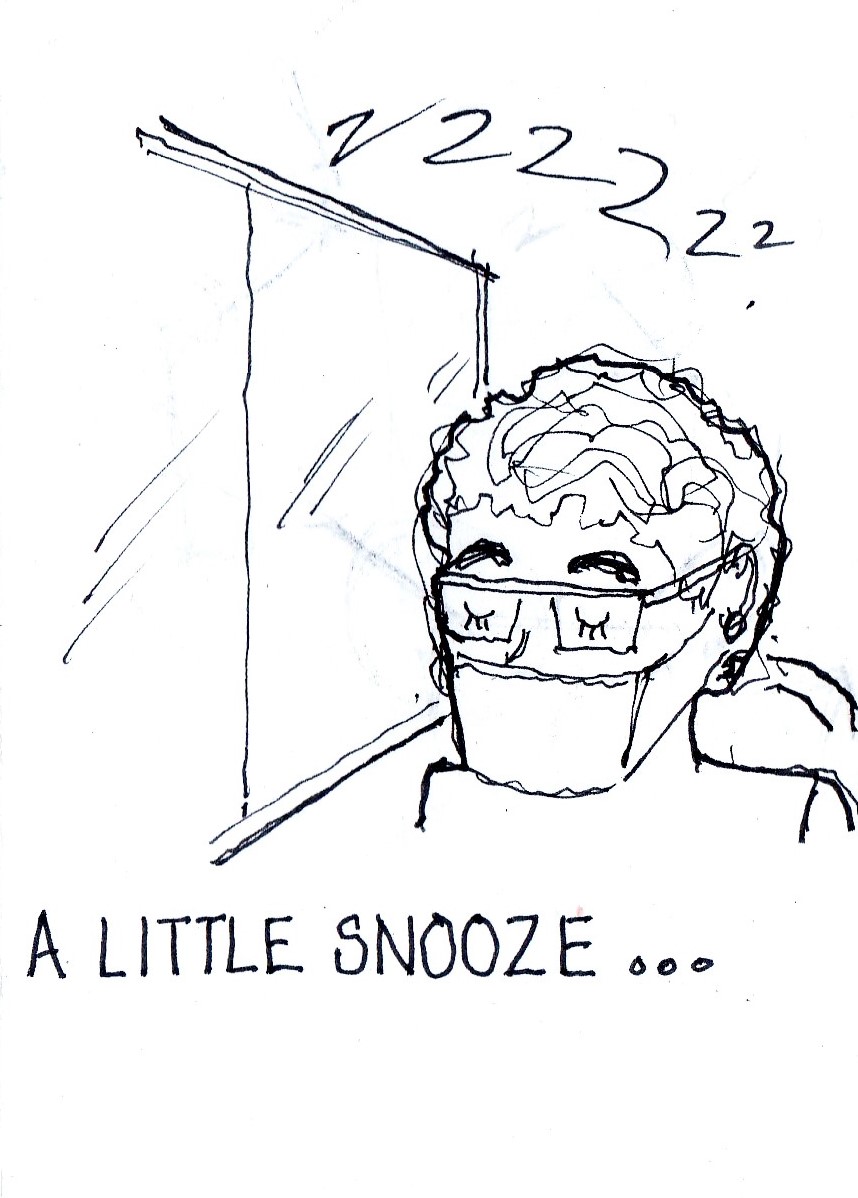 ZZZZZZ
A LITTLE SNOOZE ...